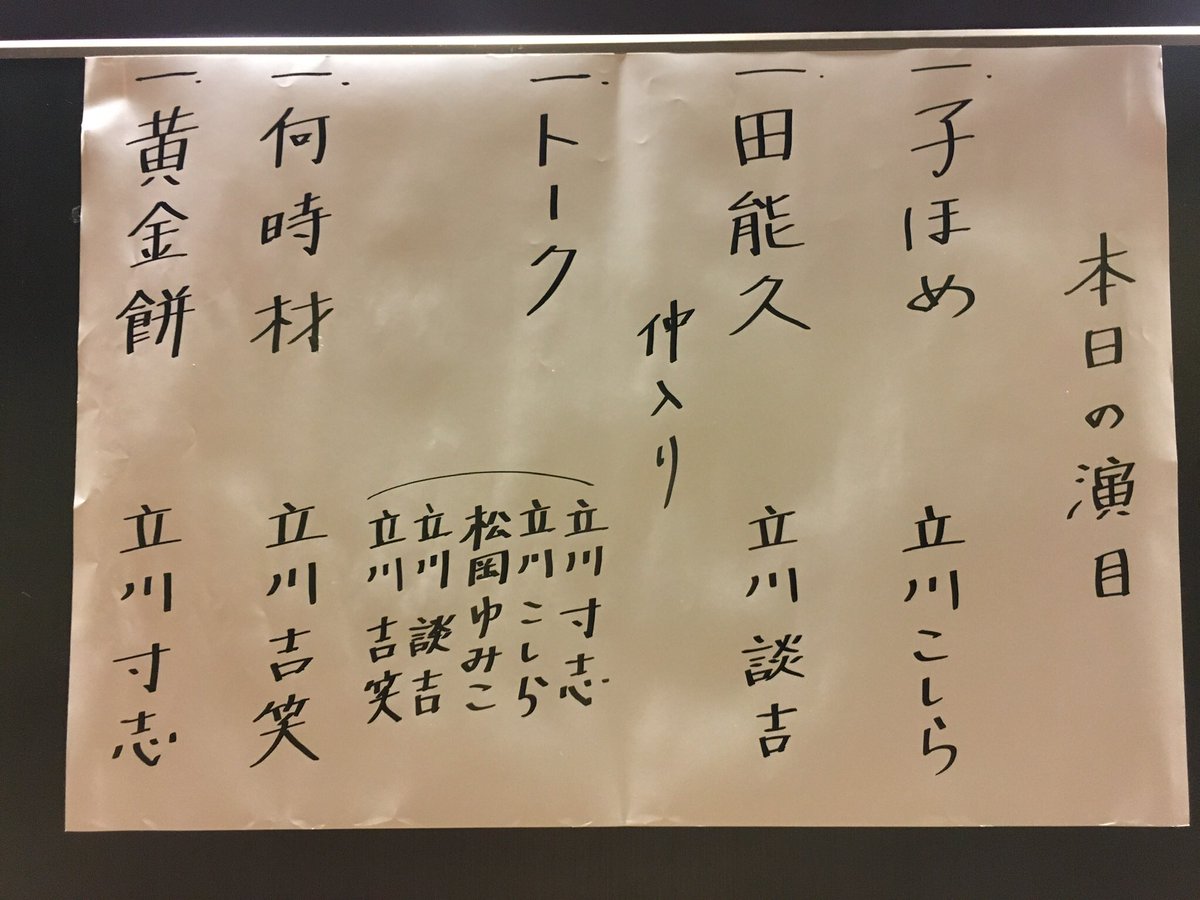 本日の演目
一.子ほめ 立川こしら
一.田能久 立川談吉
仲入り
一.トーク
立川寸志
立川こしら
松岡ゆみこ
立川談吉
立川吉笑
一.何時材 立川吉笑
一.黄金餅 立川寸志